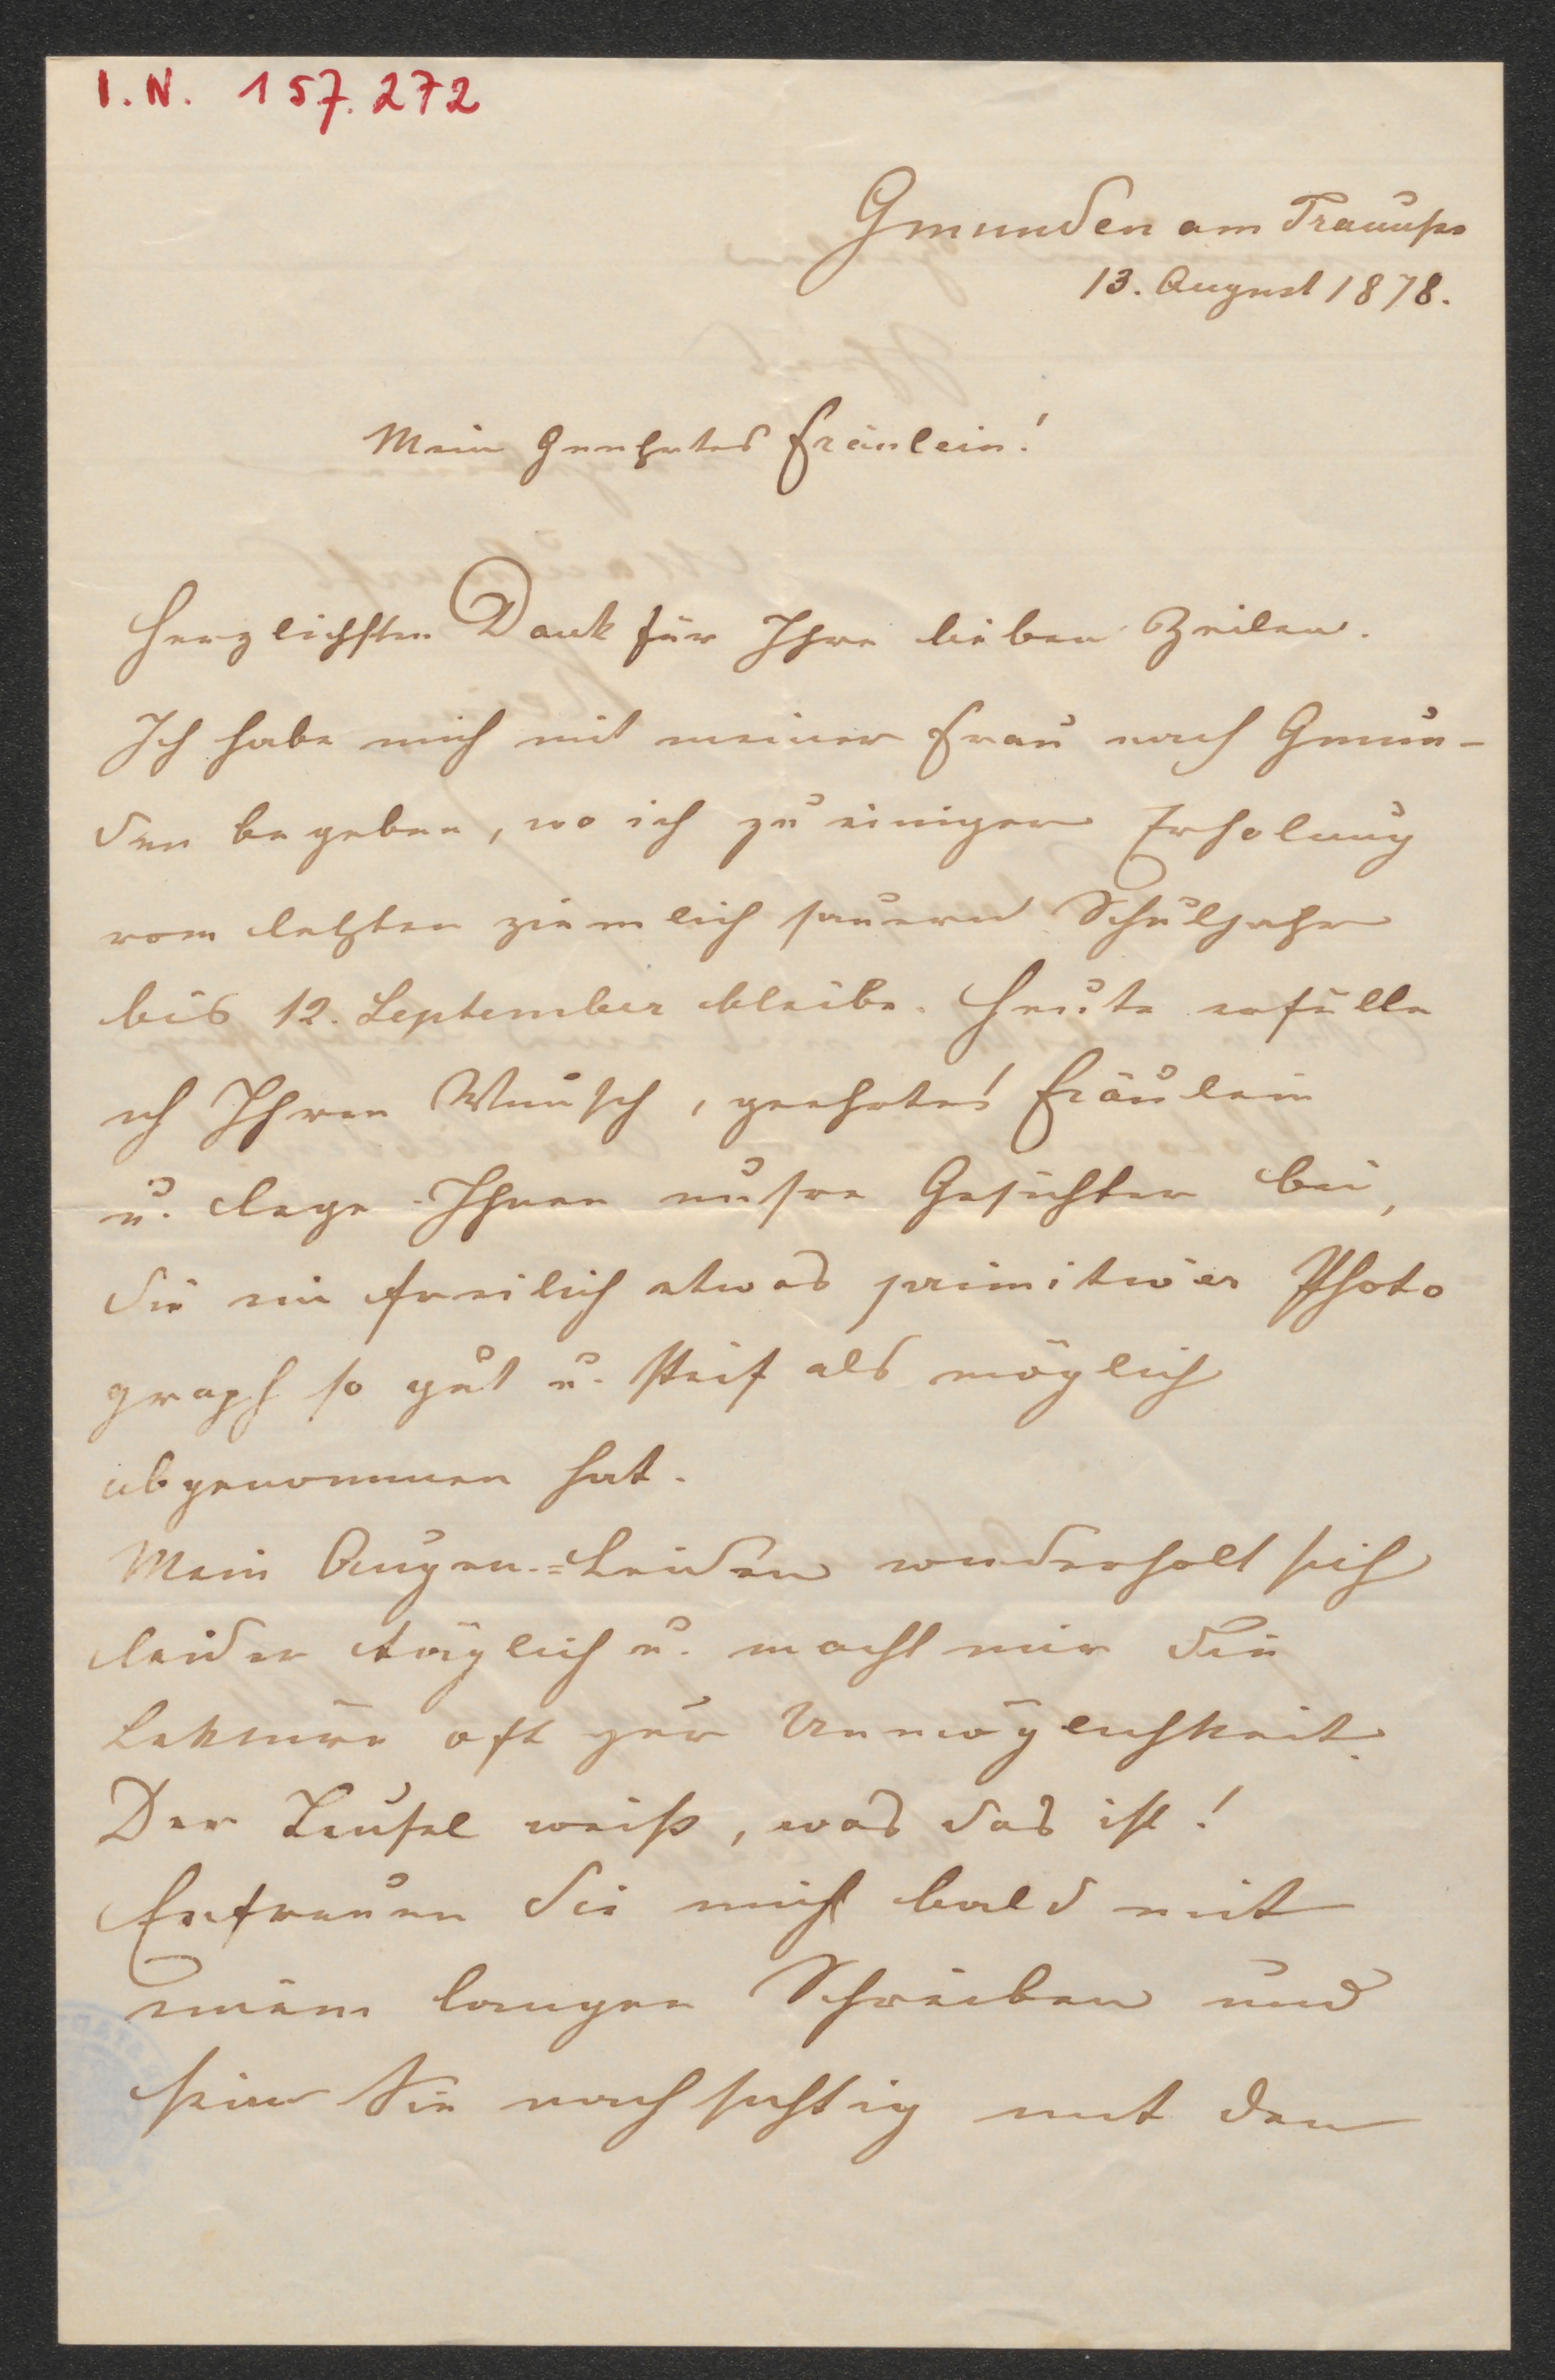 I.N. 157.272
Gmunden am Traunsee
13. August 1878.
Mein Geehrtes Fräulein!
Herzlichsten Dank für Ihre lieben Zeilen.
Ich habe mich mit meiner Frau nach Gmun-
den begeben, wo ich zu einiger Erholung
vom letzten ziemlich sauern Schuljahr
bis 12. September bleibe. Heute erfülle
ich Ihren Wunsch, geehrtes Fräulein
u. lege Ihnen unsre Gesichter bei,
die ein freilich etwas primitiver Photo
graph so gut u. steif als möglich
abgenommen hat.
Mein Augen-Leiden wiederholt sich
leider täglich u. macht mir die
Lektüre oft zur Unmöglichkeit.
Der Teufel weiß, was das ist!
Erfreuen Sie mich bald mit
einem langen Schreiben und
seien Sie nachsichtig mit den